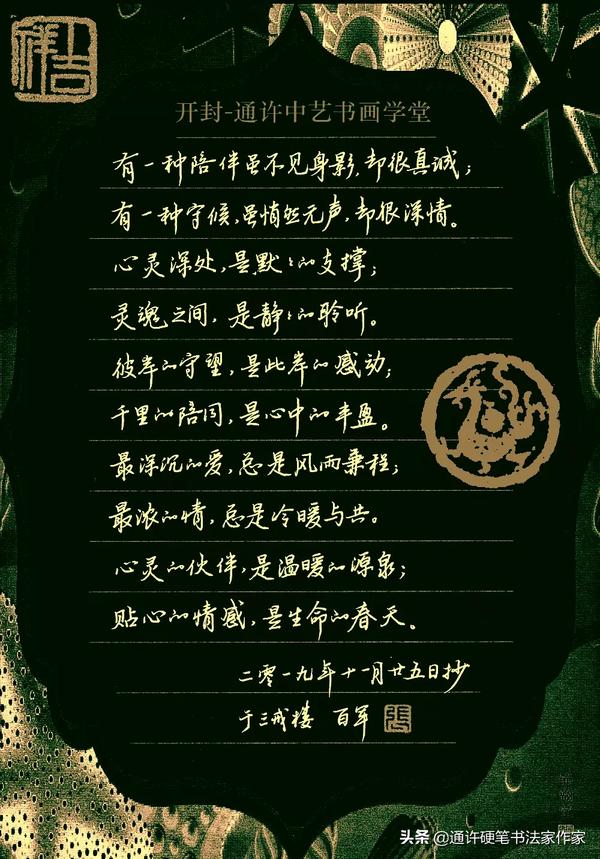 吉祥
开封-通许中艺书画学堂
有一种陪伴虽不见身影，却很真诚；
有一种守候，虽悄然无声，却很深情。
心灵深处，是默默的支撑；
灵魂之间，是静静的聆听。
彼岸的守望，是此岸的感动；
千里的陪同，是心中的丰盈。
最深沉的爱，总是风雨兼程；
最浓的情，总是冷暖与共。
心灵的伙伴，是温暖的源泉；
贴心的情感，是生命的春天。
二零一九年十一月廿五日抄
于三戒楼 百军 張
头条 @通许硬笔书法家作家